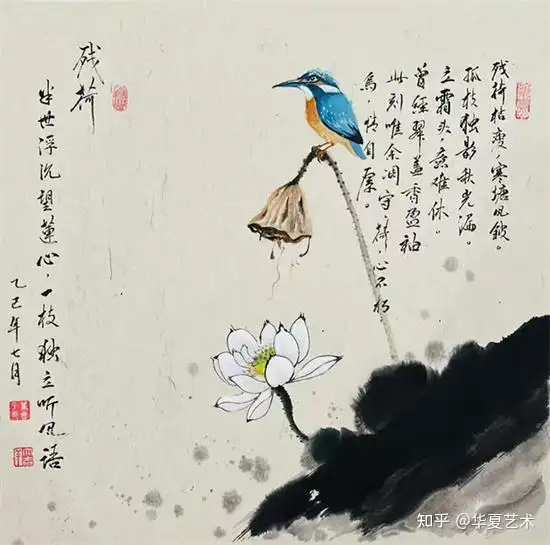 残荷枯瘦，寒塘风皱。
孤枝独影秋光漏。
立霜头，意难休。
曾经翠盖香盈袖
此刻唯余凋守，心不朽，
鸟，情自厚。
残荷
半世浮沉望莲心，一枝独立听风语
乙巳年七月
知乎 @华夏艺术